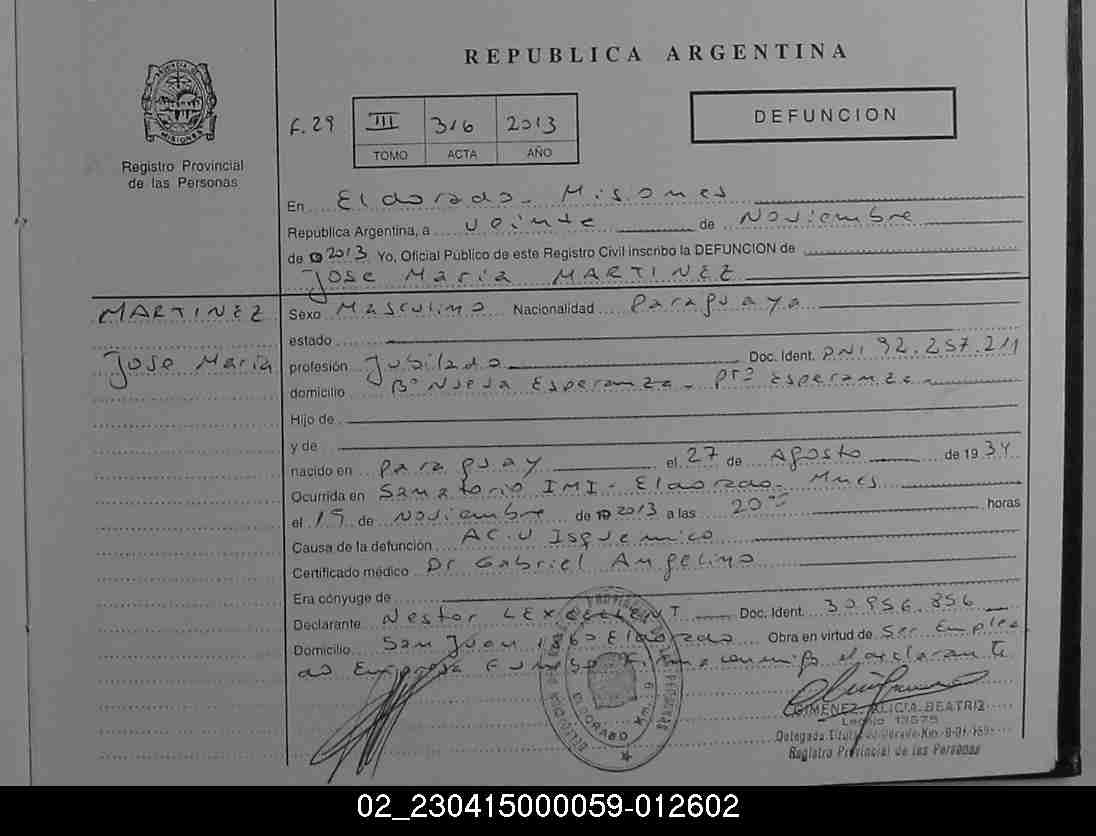 REPUBLICA ARGENTINA
MISIONES
Registro Provincial
de las Personas
F. 29 III 316 2013
TOMO ACTA AÑO
DEFUNCION
En Eldorado - Misiones
Republica Argentina, a veinte de Noviembre
de 2013 Yo, Oficial Público de este Registro Civil inscribo la DEFUNCION de
Jose Maria MARTINEZ
MARTINEZ
Jose Maria
Sexo Masculino Nacionalidad Paraguaya
estado
profesión Jubilado Doc. Ident. DNI 92.257.211
domicilio Bº Nueva Esperanza - Ptº Esperanza
Hijo de
y de
nacido en Paraguay el 27 de Agosto de 1934
Ocurrida en Sanatorio IMI - Eldorado - Mnes
el 19 de Noviembre de 2013 a las 20 horas
Causa de la defunción AC.V Isquemico
Certificado médico Dr Gabriel Angelino
Era cónyuge de
Declarante Nestor Doc. Ident. 30.956.356
Domicilio San Juan 1860 Eldorado Obra en virtud de Ser Emplea
do Empresa Funebre Firma conmigo el declarante
GIMENEZ ALICIA BEATRIZ
Legajo 13575
Delegada Titular Eldorado Km. 9
Registro Provincial de las Personas
ELDORADO Km. 9
02_230415000059-012602